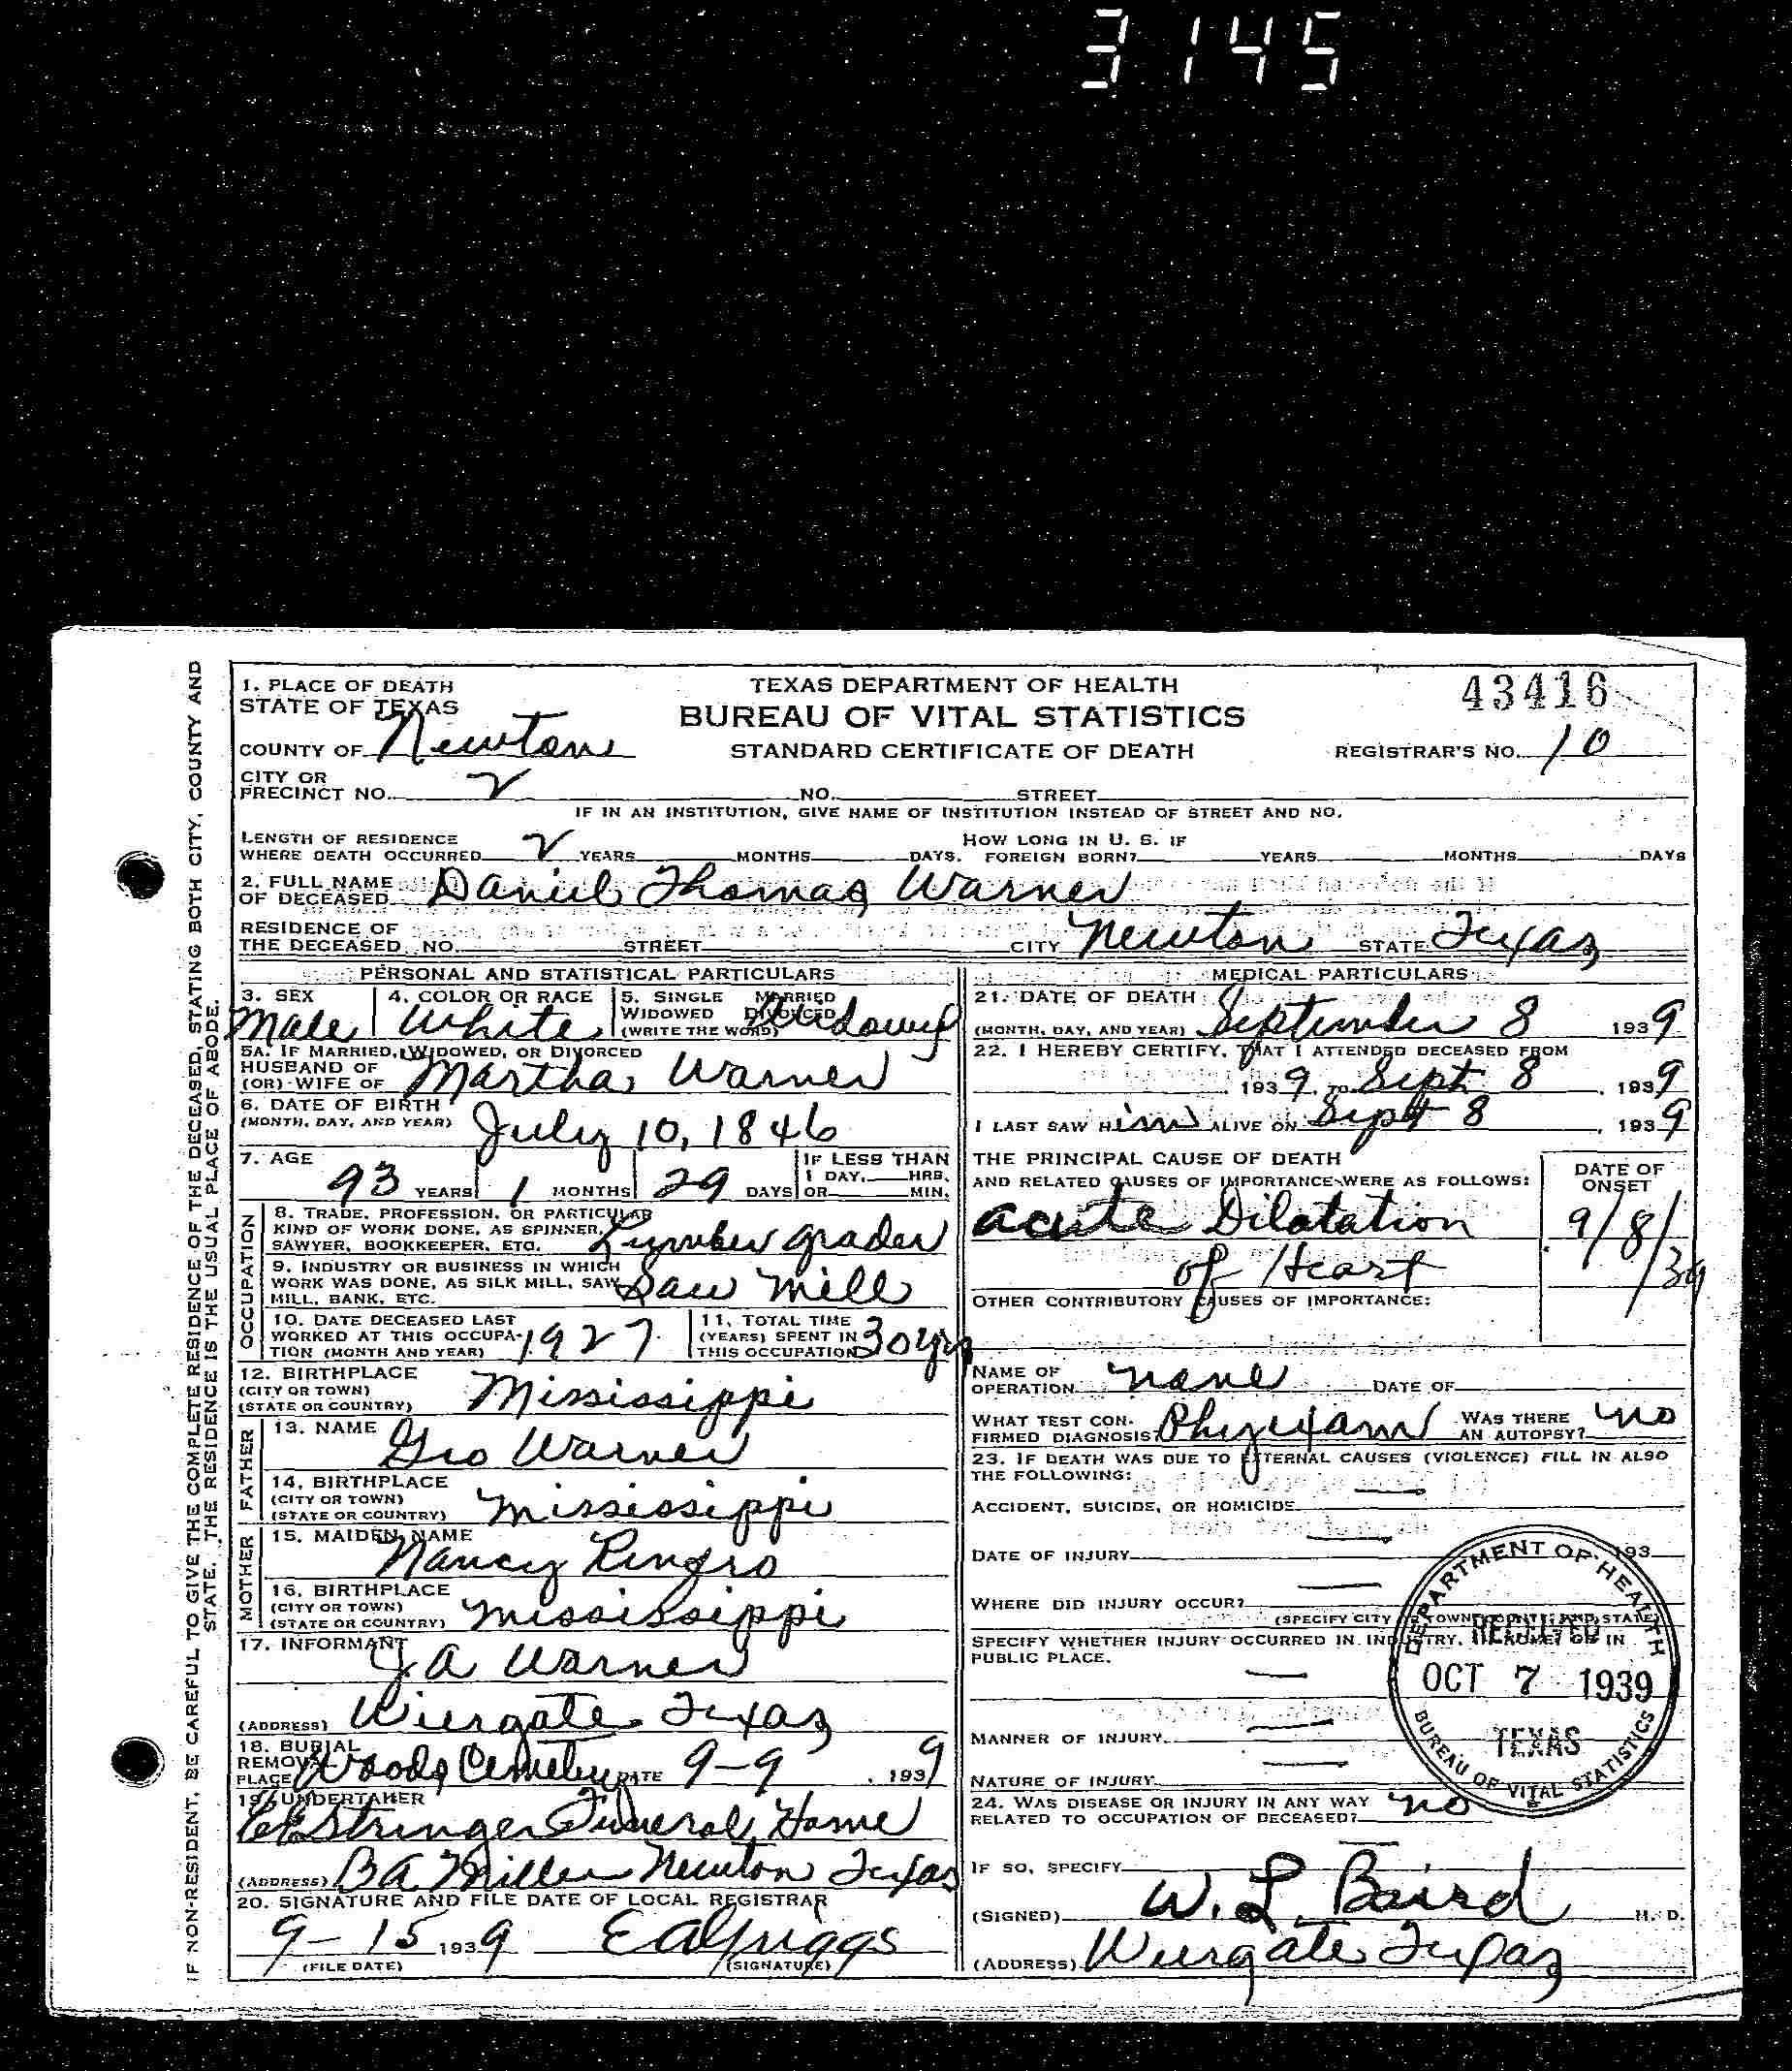 3145
1. PLACE OF DEATH
STATE OF TEXAS
TEXAS DEPARTMENT OF HEALTH
BUREAU OF VITAL STATISTICS
STANDARD CERTIFICATE OF DEATH
43416
COUNTY OF Newton
REGISTRAR'S NO. 10
CITY OR
PRECINCT NO. 2 NO. STREET
IF IN AN INSTITUTION, GIVE NAME OF INSTITUTION INSTEAD OF STREET AND NO.
LENGTH OF RESIDENCE
WHERE DEATH OCCURRED 2 YEARS MONTHS DAYS. HOW LONG IN U. S. IF FOREIGN BORN? YEARS MONTHS DAYS
2. FULL NAME
OF DECEASED Daniel Thomas Warner
RESIDENCE OF
THE DECEASED NO. STREET CITY Newton STATE Texas
PERSONAL AND STATISTICAL PARTICULARS
3. SEX Male
4. COLOR OR RACE White
5. SINGLE MARRIED
WIDOWED DIVORCED
(WRITE THE WORD)
5A. IF MARRIED, WIDOWED, OR DIVORCED
HUSBAND OF
(OR) WIFE OF Martha Warner
6. DATE OF BIRTH
(MONTH, DAY, AND YEAR) July 10, 1846
7. AGE
93 YEARS 1 MONTHS 29 DAYS
IF LESS THAN
1 DAY, HRS.
OR MIN.
OCCUPATION
8. TRADE, PROFESSION, OR PARTICULAR
KIND OF WORK DONE, AS SPINNER,
SAWYER, BOOKKEEPER, ETC. Lumber grader
9. INDUSTRY OR BUSINESS IN WHICH
WORK WAS DONE, AS SILK MILL, SAW
MILL, BANK, ETC. Saw Mill
10. DATE DECEASED LAST
WORKED AT THIS OCCUPA-
TION (MONTH AND YEAR) 1927
11. TOTAL TIME
(YEARS) SPENT IN
THIS OCCUPATION 30 yrs
12. BIRTHPLACE
(CITY OR TOWN)
(STATE OR COUNTRY) Mississippi
FATHER
13. NAME Geo Warner
14. BIRTHPLACE
(CITY OR TOWN)
(STATE OR COUNTRY) Mississippi
MOTHER
15. MAIDEN NAME
Nancy
16. BIRTHPLACE
(CITY OR TOWN)
(STATE OR COUNTRY) Mississippi
17. INFORMANT
J A Warner
(ADDRESS) Wiergate Texas
18. BURIAL
REMOVAL
PLACE Woods Cemetery DATE 9-9, 1939
19. UNDERTAKER
Stringer Funeral Home
(ADDRESS) BA Miller Newton Texas
20. SIGNATURE AND FILE DATE OF LOCAL REGISTRAR
9-15 1939 E A Griggs
(FILE DATE) (SIGNATURE)
MEDICAL PARTICULARS
21. DATE OF DEATH
(MONTH, DAY, AND YEAR) September 8 1939
22. I HEREBY CERTIFY, THAT I ATTENDED DECEASED FROM
1939, TO Sept 8, 1939
I LAST SAW Him ALIVE ON Sept 8, 1939
THE PRINCIPAL CAUSE OF DEATH
AND RELATED CAUSES OF IMPORTANCE WERE AS FOLLOWS:
DATE OF
ONSET
acute Dilatation
of Heart
9/8/39
OTHER CONTRIBUTORY CAUSES OF IMPORTANCE:
NAME OF
OPERATION none DATE OF
WHAT TEST CON-
FIRMED DIAGNOSIS? Phy exam WAS THERE
AN AUTOPSY? no
23. IF DEATH WAS DUE TO EXTERNAL CAUSES (VIOLENCE) FILL IN ALSO
THE FOLLOWING:
ACCIDENT, SUICIDE, OR HOMICIDE —
DATE OF INJURY — 193
WHERE DID INJURY OCCUR? —
(SPECIFY CITY OR TOWN, COUNTY, AND STATE)
SPECIFY WHETHER INJURY OCCURRED IN INDUSTRY, IN HOME, OR IN
PUBLIC PLACE. —
MANNER OF INJURY —
NATURE OF INJURY —
24. WAS DISEASE OR INJURY IN ANY WAY
RELATED TO OCCUPATION OF DECEASED? no
IF SO, SPECIFY —
(SIGNED) W. L. Baird M. D.
(ADDRESS) Wiergate Texas
DEPARTMENT OF HEALTH
RECEIVED
OCT 7 1939
TEXAS
BUREAU OF VITAL STATISTICS
IF NON-RESIDENT, BE CAREFUL TO GIVE THE COMPLETE RESIDENCE OF THE DECEASED, STATING BOTH CITY, COUNTY AND
STATE. THE RESIDENCE IS THE USUAL PLACE OF ABODE.